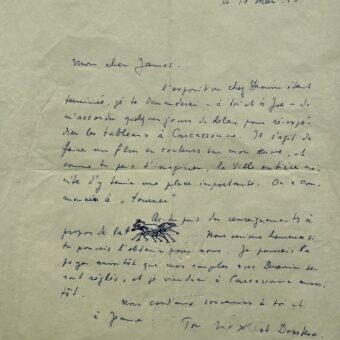 Mon cher James.
l'exposition chez Drouin étant
terminée, je te demanderai – à toi et à Joe – de
m'accorder quelques jours de délai pour réexpé-
dier les tableaux à Carcassonne. Il s'agit de
faire un film en couleurs sur mon œuvre, et
comme tu peux t'imaginer, la Ville entière mé-
rite d'y tenir une place importante. On a com-
mencé à "tourner"
As-tu pris des renseignements à
propos de la ... Nous serions heureux si
tu pouvais l'obtenir pour nous. Je pourrais la
payer aussitôt que mes comptes avec Drouin se-
ront réglés, et je viendrai à Carcassonne aussi-
tôt.
Nous cordiaux souvenirs à toi et
à Jeanne. Ton Max et Dorothea